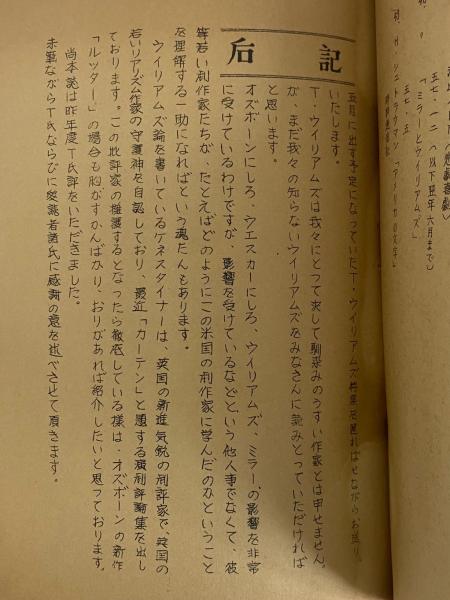 后記
五月に出す予定になっていたT・ウイリアムズ特集を遅ればせながらお送り
いたします。
T・ウイリアムズは我々にとって決して馴染みのうすい作家とは申せません
が、まだ我々の知らないウイリアムズをみなさんに読みとっていただければ
と思います。
オズボーンにしろ、ウエスカーにしろ、ウイリアムズ、ミラーの影響を非常
に受けているわけですが、影響を受けているなどという他人事でなくて、彼
等若い劇作家たちが、たとえばどのようにこの米国の劇作家に学んだのかということ
を理解する一助になればという魂たんもあります。
ウイリアムズ論を書いているケネスタイナーは、英国の新進気鋭の劇評家で、英国の
若いリアリズム作家の守護神を自認しており、最近「カーテン」と題する演劇評論集を出し
ております。この批評家の擁護するとなったら徹底している様は、オズボーンの新作
「ルッター」の場合も胸がすかんばかり、おりがあれば紹介したいと思っております。
尚本誌は昨年度T氏評をいただきました。
赤筆ながらT氏ならびに愛読者諸氏に感謝の意を述べさせて頂きます。
五七・一二（以下翌年六月まで）
「ミラーとウイリアムズ」
五七・五
「アメリカの文学」